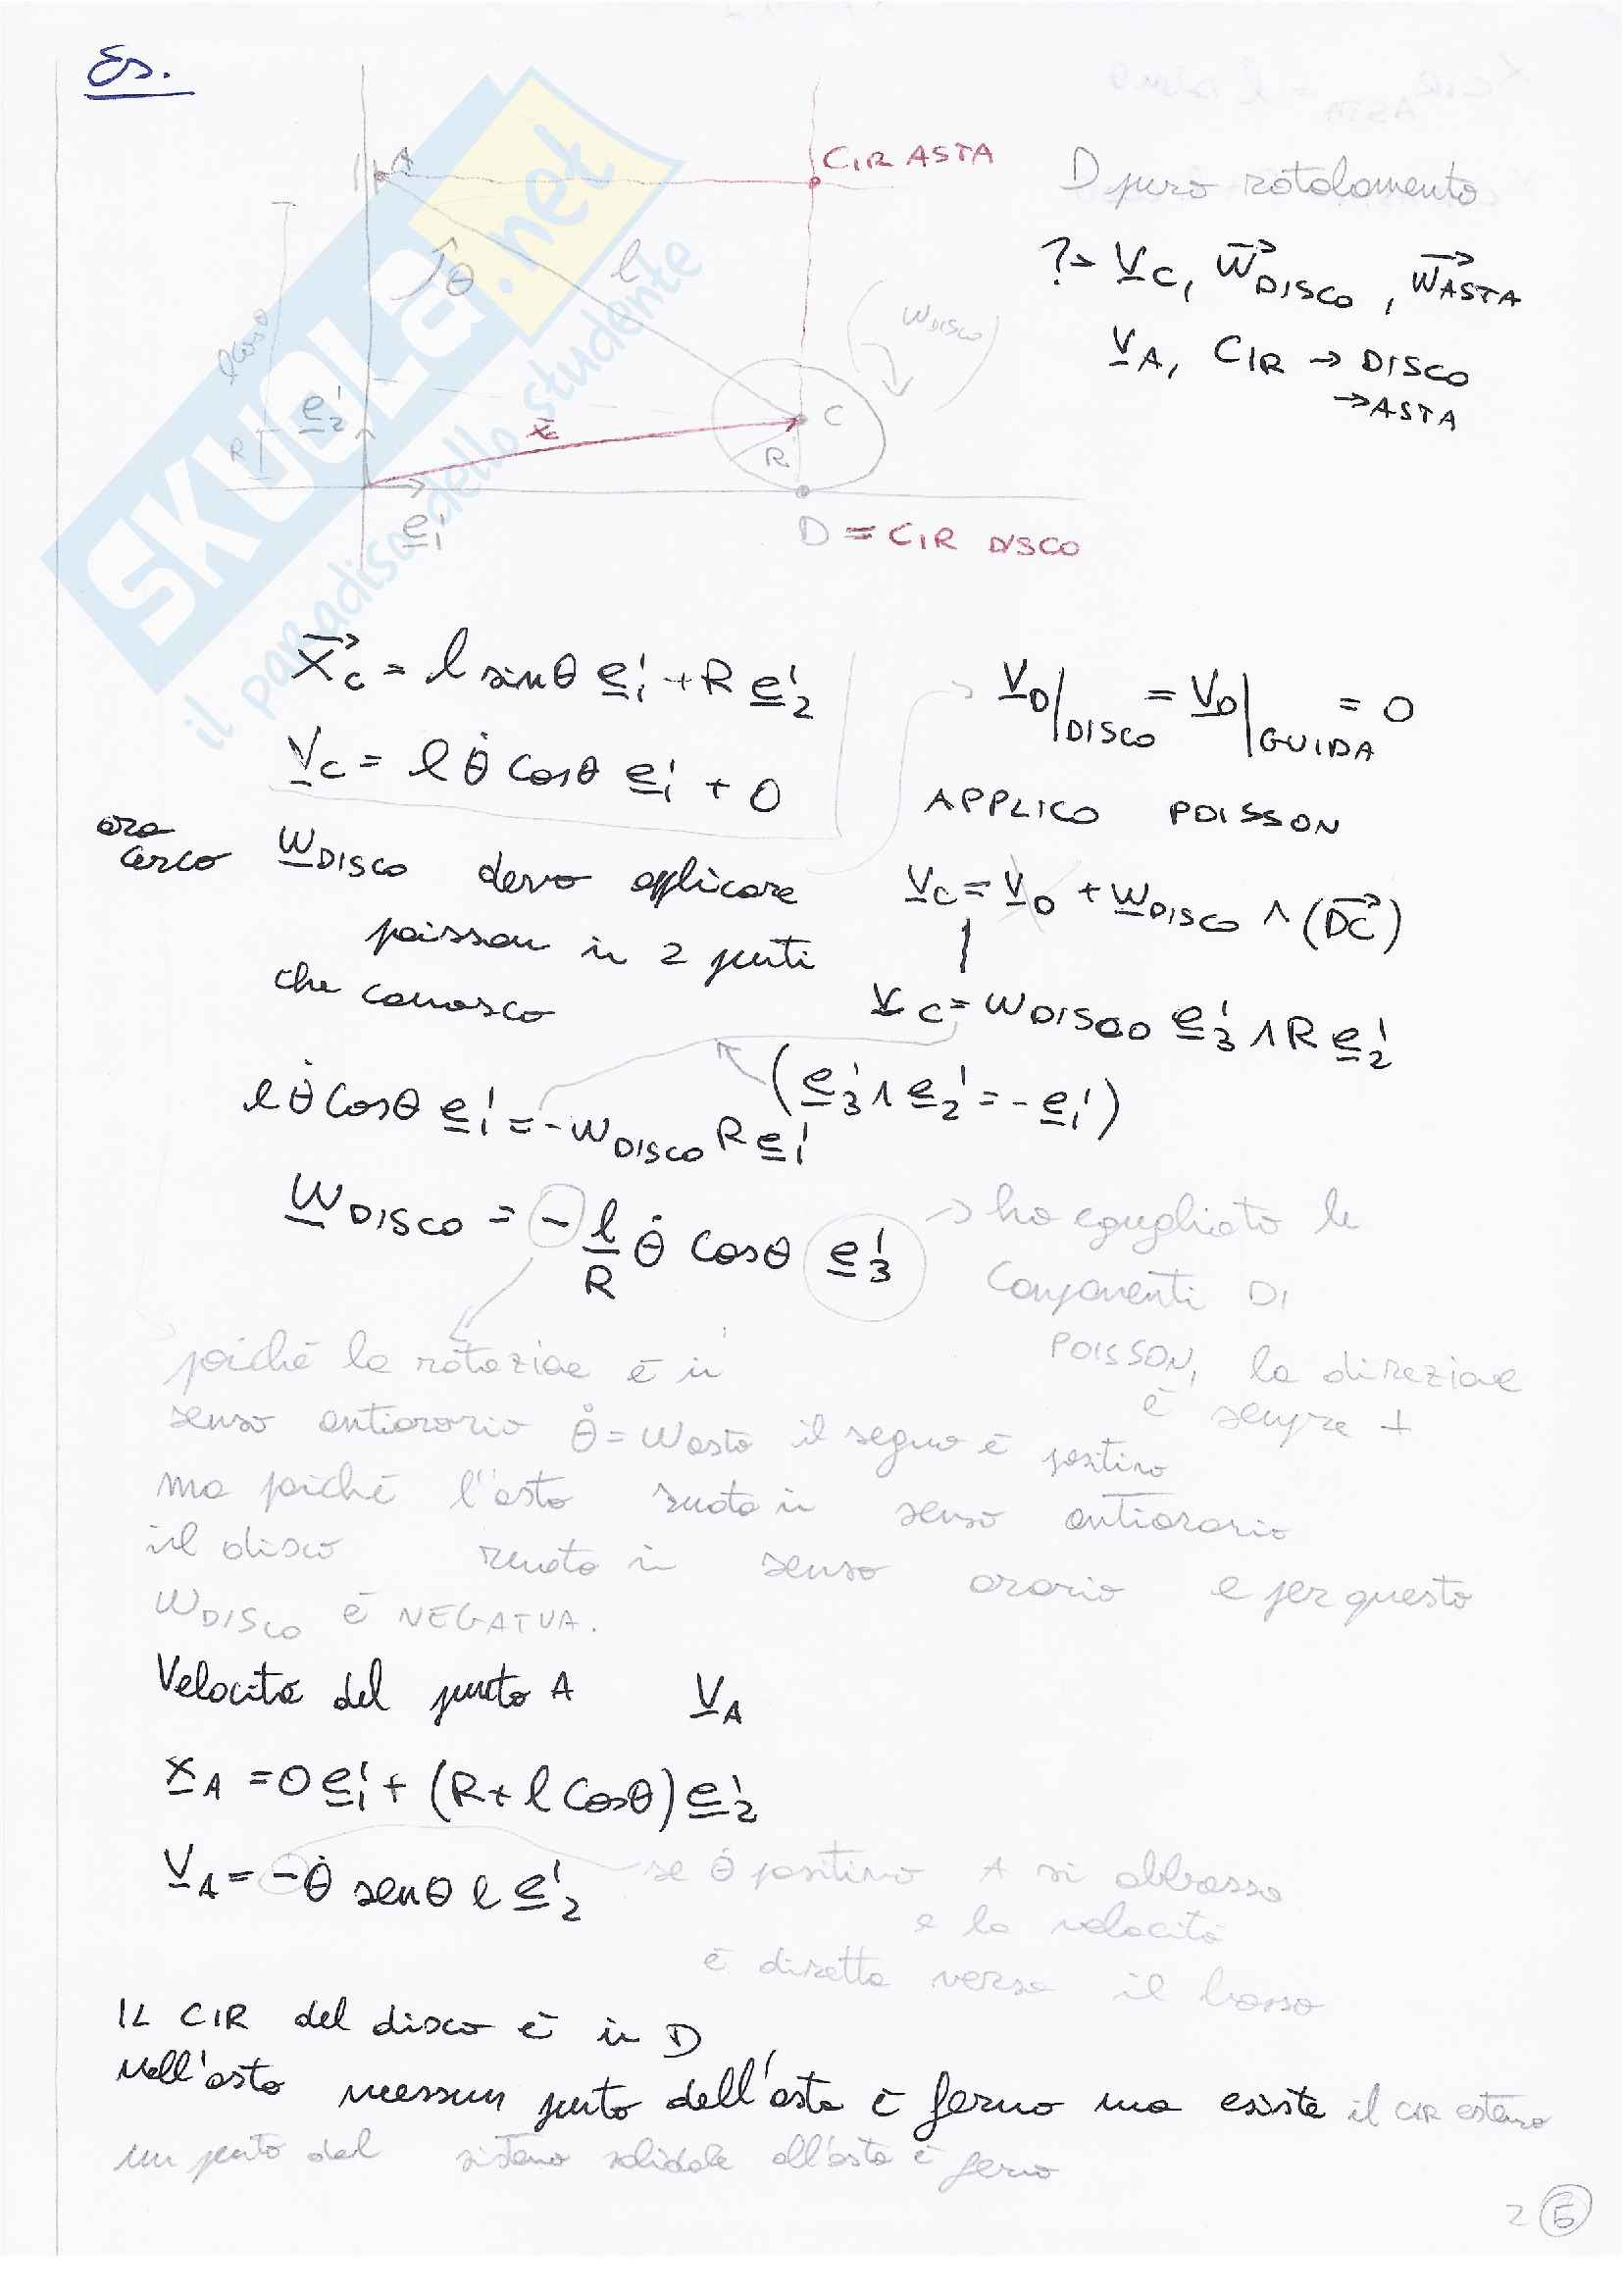 Es.
A
CIR ASTA
D puro rotolamento
?→ V_C, W⃗_DISCO, W⃗_ASTA
V_A, CIR → DISCO
→ ASTA
θ
l
W_DISCO
l cosθ
R
e'_2
x_c
C
R
e'_1
D = CIR DISCO
SKUOLA.net
il paradiso dello studente
X⃗_C = l sinθ e'_1 + R e'_2
V_D|DISCO = V_D|GUIDA = 0
V_C = l θ̇ cosθ e'_1 + 0
APPLICO POISSON
ora cerco W_DISCO devo applicare
poisson in 2 punti
che conosco
V_C = V_D + W_DISCO ∧ (DC⃗)
V_C = W_DISCO e'_3 ∧ R e'_2
(e'_3 ∧ e'_2 = - e'_1)
l θ̇ cosθ e'_1 = - W_DISCO R e'_1
W_DISCO = - l/R θ̇ cosθ e'_3
→ ho eguagliato le
componenti DI
POISSON, la direzione
è sempre ⊥
poiché la rotazione è in
senso antiorario θ̇ = W asta il segno è positivo
ma poiché l'asta ruota in senso antiorario
il disco ruota in senso orario e per questo
W_DISCO è NEGATIVA.
Velocità del punto A V_A
x_A = 0 e'_1 + (R + l cosθ) e'_2
V_A = - θ̇ senθ l e'_2
se θ̇ positivo A si abbassa
e la velocità
è diretta verso il basso
IL CIR del disco è in D
nell'asta nessun punto dell'asta è fermo ma esiste il CIR esterno
un punto del sistema solidale all'asta è fermo
2 5